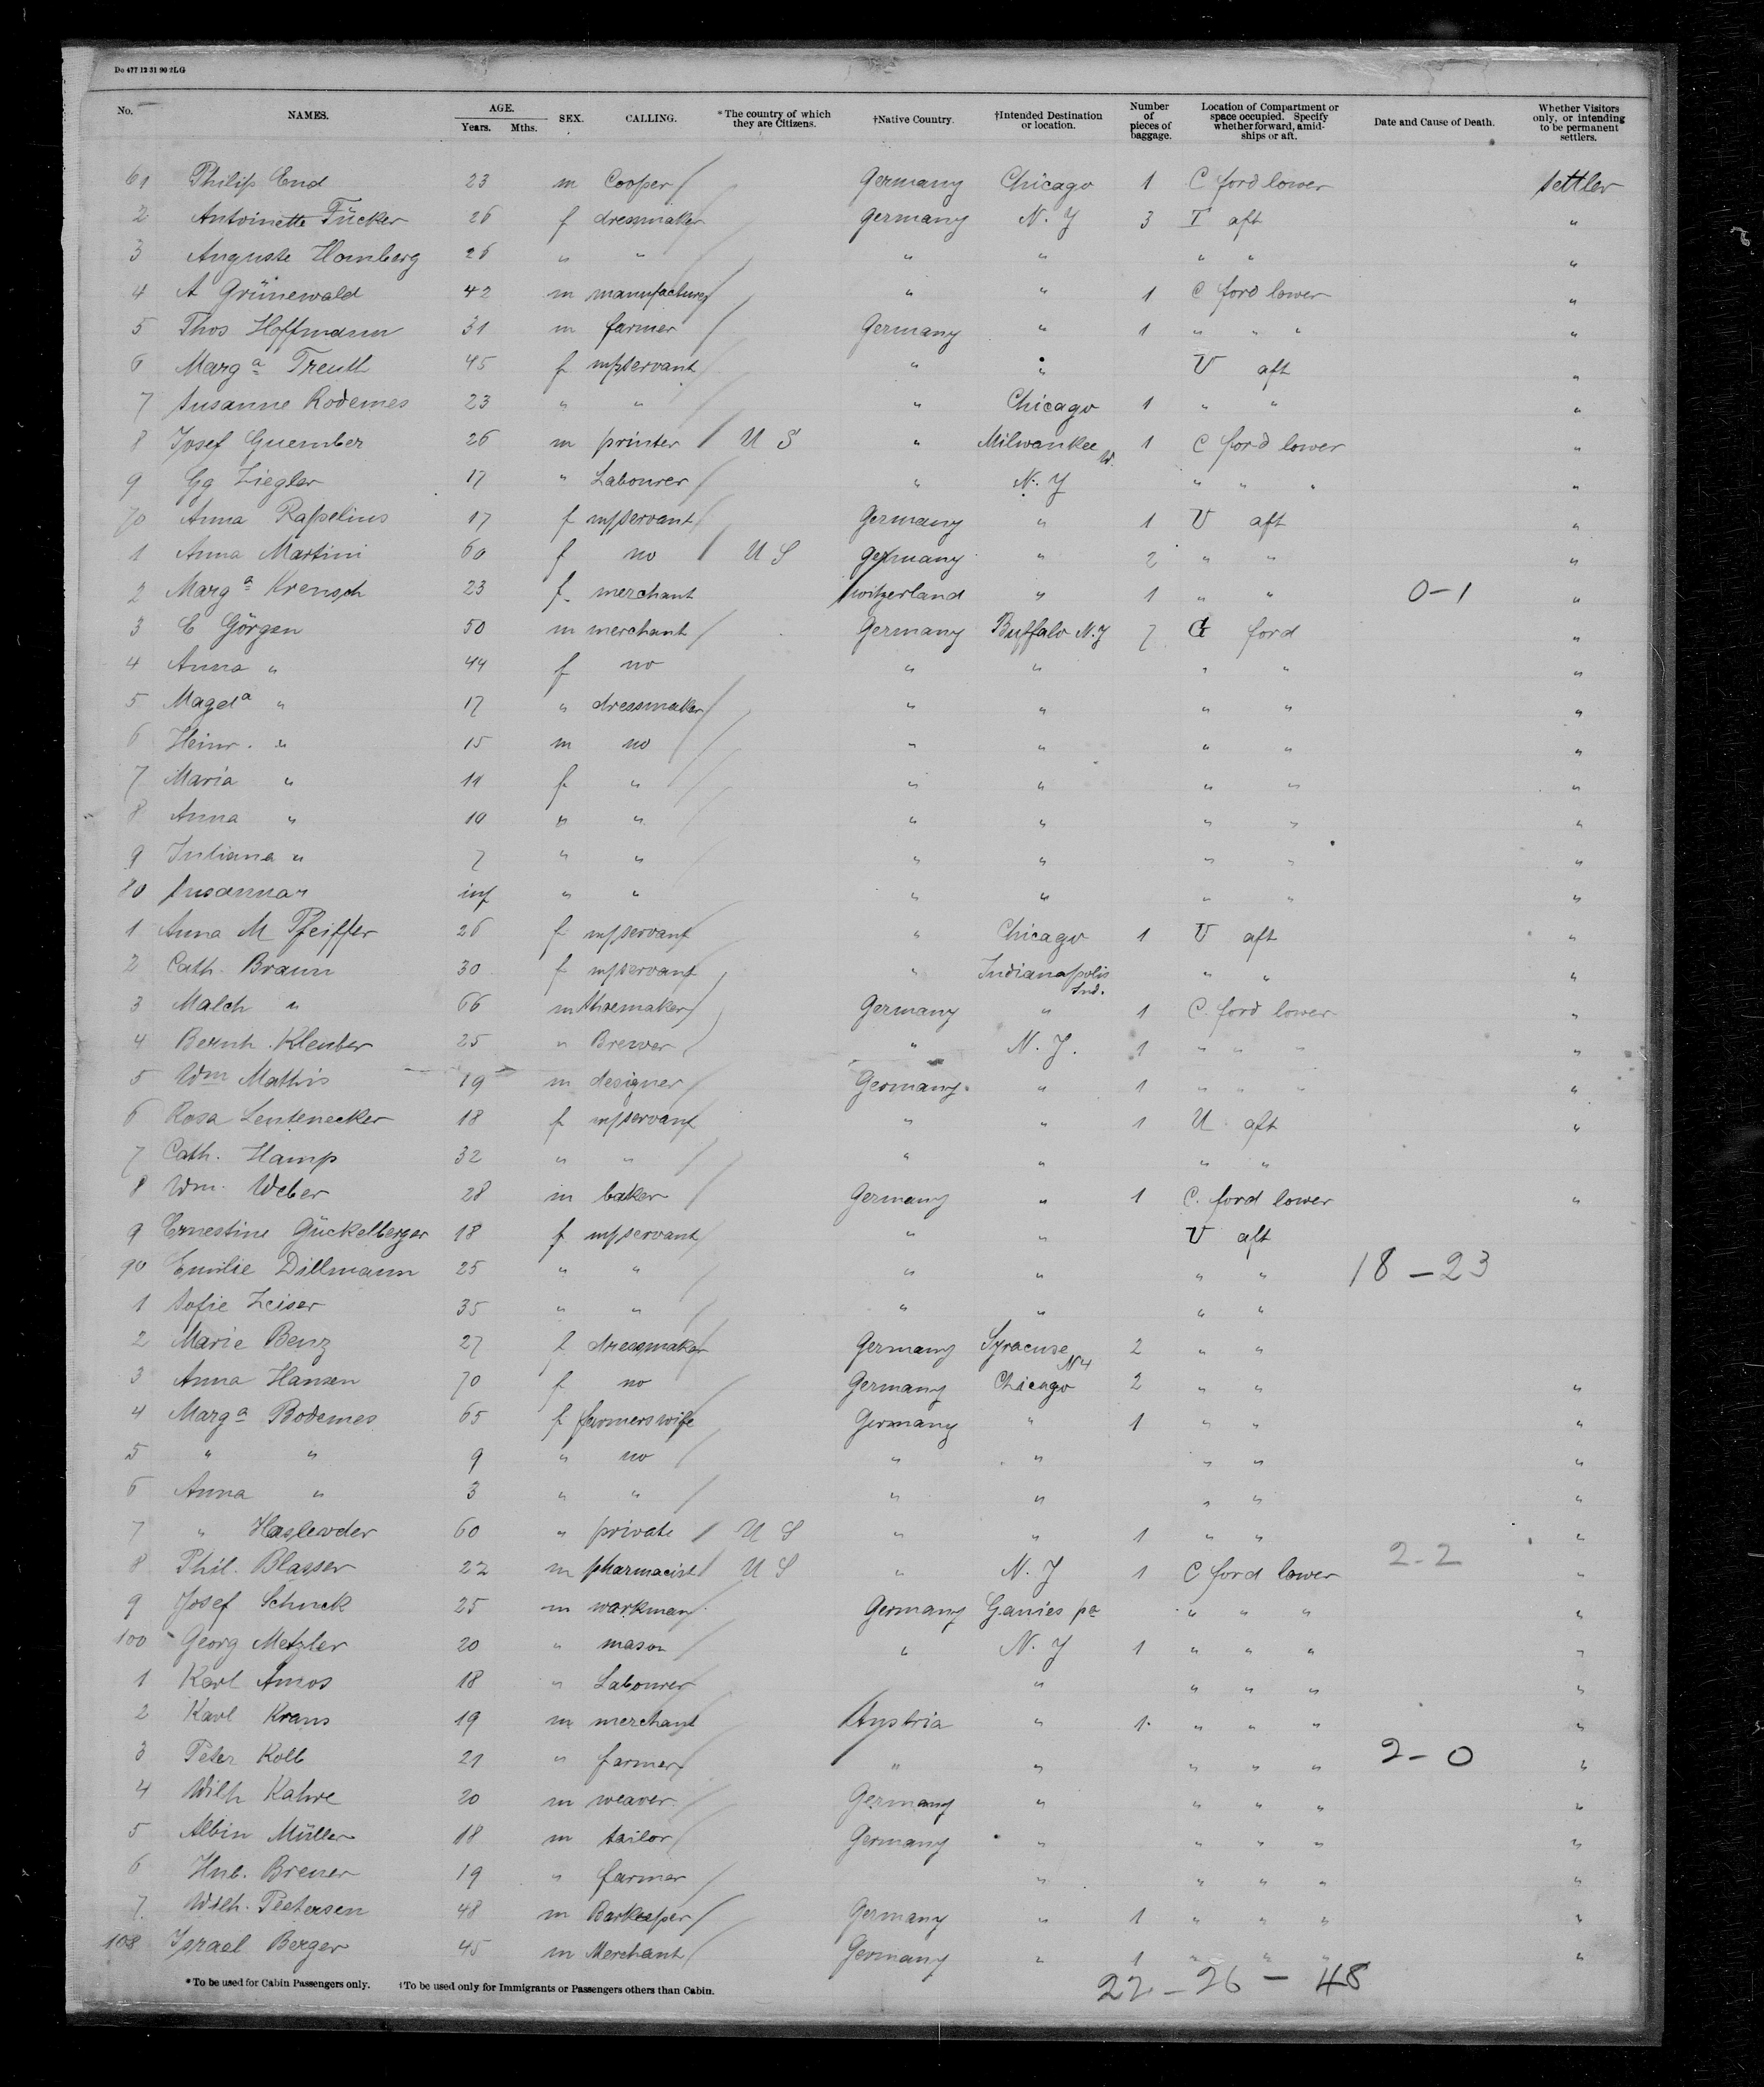 Do 477 12 31 90 2LG
No. NAMES. AGE. Years. Mths. SEX. CALLING. *The country of which they are Citizens. †Native Country. †Intended Destination or location. Number of pieces of baggage. Location of Compartment or space occupied. Specify whether forward, amidships or aft. Date and Cause of Death. Whether Visitors only, or intending to be permanent settlers.
61 Philip End 23 m Cooper Germany Chicago 1 C ford lower settler
2 Antoinette Tücker 26 f dressmaker Germany N. Y 3 I aft "
3 Auguste Homberg 26 " " " " " " "
4 A Grünewald 42 m manufacturer " " 1 C ford lower "
5 Thos Hoffmann 31 m farmer Germany " 1 " " " "
6 Marga Treuth 45 f servant " " U aft "
7 Susanne Rodemes 23 " " " Chicago 1 " " "
8 Josef Guember 26 m printer U S " Milwaukee W. 1 C ford lower "
9 Gg Ziegler 17 " Labourer " N. Y " " " "
70 Anna Rasselius 17 f servant Germany " 1 U aft "
1 Anna Martini 60 f no U S Germany " 2 " " "
2 Marga Krensch 23 f. merchant Switzerland " 1 " " 0-1 "
3 C Görgen 50 m merchant Germany Buffalo N.Y 7 G ford "
4 Anna " 44 f no " " " " "
5 Magda " 17 " dressmaker " " " " "
6 Heinr. " 15 m no " " " " "
7 Maria " 11 f " " " " " "
8 Anna " 10 " " " " " " "
9 Juliana " 7 " " " " " " "
80 Susanna " inf " " " " " " "
1 Anna M Pfeiffer 26 f servant " Chicago 1 U aft "
2 Cath. Braun 30 f servant " Indianapolis Ind. " " "
3 Malch " 66 m shoemaker Germany " 1 C. ford lower "
4 Bernh. Kleuber 25 " Brewer " N. Y. 1 " " " "
5 Wm Mathis 19 m designer Germany " 1 " " " "
6 Rosa Lentenecker 18 f servant " " 1 U aft "
7 Cath. Hamp 32 " " " " " "
8 Wm. Weber 28 m baker Germany " 1 C. ford lower "
9 Ernestine Gückelberger 18 f servant " " U aft
90 Emilie Dillmann 25 " " " " " " 18-23
1 Sofie Zeiser 35 " " " " " "
2 Marie Benz 27 f dressmaker Germany Syracuse NY 2 " "
3 Anna Hansen 70 f no Germany Chicago 2 " " "
4 Marga Bodemes 65 f farmers wife Germany " 1 " " "
5 " " 9 " no " " " " "
6 Anna " 3 " " " " " " "
7 " Haslewder 60 " private U S " " 1 " " "
8 Phil. Blasser 22 m pharmacist U S " N. Y 1 C ford lower 2-2 "
9 Josef Schuck 25 m workman Germany Ganies pa " " " "
100 Georg Metzler 20 " mason " N. Y 1 " " " "
1 Karl Amos 18 " Labourer " " " " "
2 Karl Kraus 19 m merchant Austria " 1. " " " "
3 Peter Kolb 21 " farmer " " " " " 2-0 "
4 Wilh Kahre 20 m weaver Germany " " " " "
5 Albin Müller 18 m tailor Germany " " " " "
6 Breuer 19 " farmer " " " " "
7. Wilh. Peetersen 48 m Barkeeper Germany " 1 " " " "
108 Israel Berger 45 m Merchant Germany " 1 " " " "
22-26-48
*To be used for Cabin Passengers only. †To be used only for Immigrants or Passengers others than Cabin.